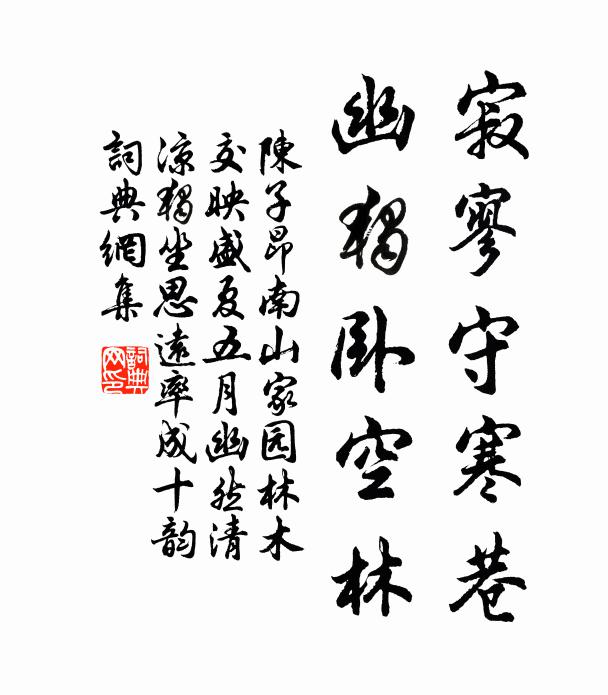 寂寥守寒巷
幽獨卧空林
陳子昂南山家园林木
交映盛夏五月幽然清
涼獨坐思遠率成十韵
詞典網集
詞典
网印